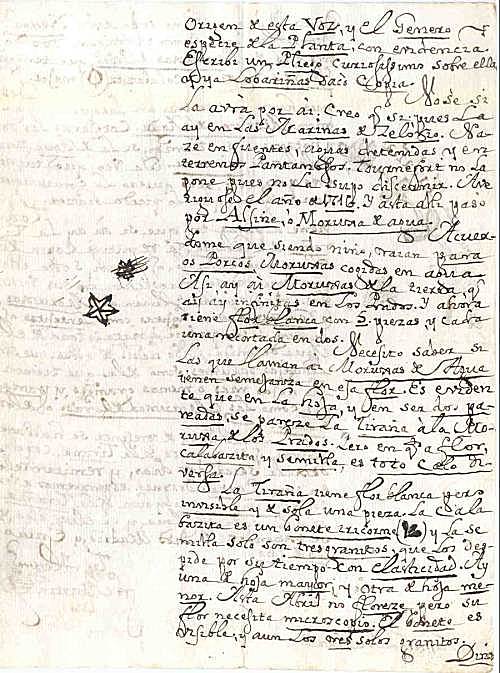 Origen de esta Voz, y el Genero y
especie de la Planta; con evidencia.
Escribí un Pliego curiosissimo sobre ella,
Lobariñas sacò Copia.
No se si
la avrà por ai. Creo q si: pues la
ay en las Mariñas de
ze en fuentes, aguas detenidas y en
terrenos Pantanosos. Tournefort no la
pone pues no la supo discernir. Ave
riguose el año de 1716. Y asta alli paso
por Alsine, ò Moruxa de agua.
Acuer-
dome que siendo niño, traian para
os Porcos Moruxas cogidas en agua
Asi ay ai Moruxas de la tierra, q
ai ay infinitas en los Prados. Y ahora
tiene flor blanca con 5 piezas y cada
una recortada en dos.
Necesito saber si
las que llaman ai Moruxas de Agua
tienen semejanza en esa flor. Es eviden
te que en la hoja, y en ser dos pa-
readas, se pareze la Tiraña à la Mo-
ruxa, de los Prados. Pero en q a flor,
calabazita y semilla, es toto Celo di-
versa.
La Tiraña tiene flor blanca pero
invisible y de sola una pieza. La cala
bazita es un bonete tricorne ( ) y la se
milla solo son tres granitos, que los des
pide por su tiempo con elasticidad. Ay
una de hoja mayor, y otra de hoja me-
nor. Asta Abril no floreze, pero su
flor necesita microscopio. El bonete es
visible, y aun los tres solos granitos.
Dirá